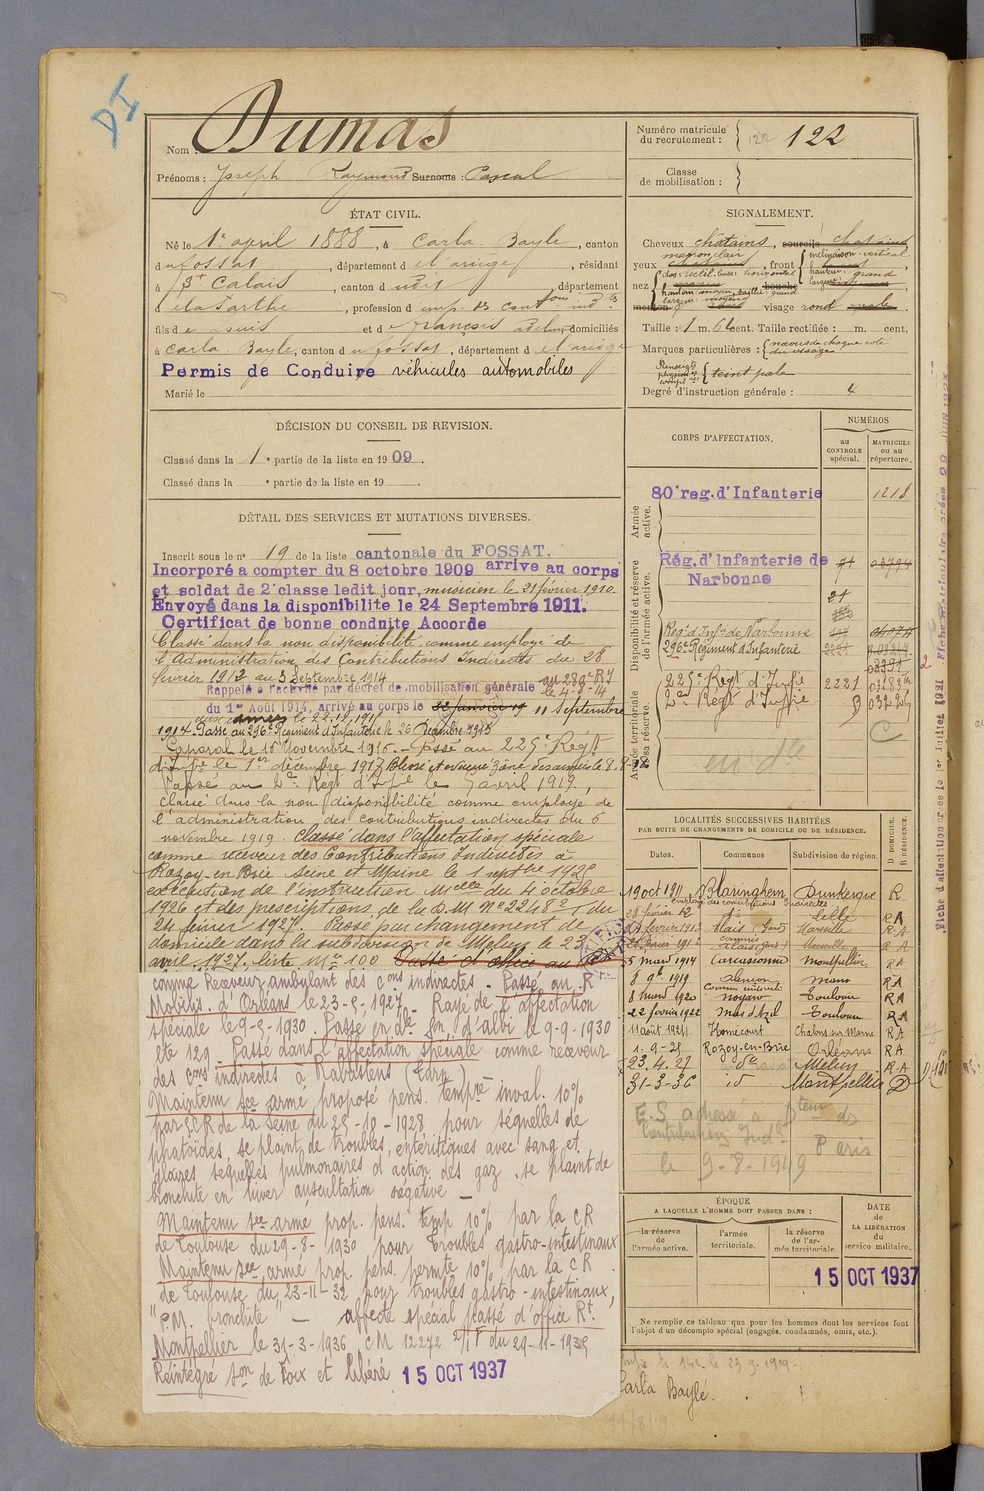 DI
Nom : Dumas
Prénoms : Joseph Raymond Surnoms : Pascal
Numéro matricule du recrutement : 122 122
Classe de mobilisation :
ÉTAT CIVIL.
Né le 1er april 1888, à Carla-Bayle, canton
du Fossat, département de l'ariège, résidant
à St Calais, canton du dit, département
de la Sarthe, profession d emp. des cont ions ind tes
fils de Louis et de François Adeline domiciliés
à Carla-Bayle, canton du fossat, département de l'ariège
Permis de Conduire véhicules automobiles
Marié le
SIGNALEMENT.
Cheveux châtains, sourcils chatains
yeux marron clair, front inclinaison: vertical hauteur: grand largeur:
nez dos: rectil. base: horizontal hauteur: moyen, saillie: grand largeur: moyen bouche
menton visage rond ovale
Taille : 1 m. 61 cent. Taille rectifiée : m. cent.
Marques particulières : naevus de chaque côté du visage
Renseignts physion. compl. teint pale
Degré d'instruction générale : 4
DÉCISION DU CONSEIL DE REVISION.
Classé dans la 1 e partie de la liste en 1909.
Classé dans la e partie de la liste en 19
DÉTAIL DES SERVICES ET MUTATIONS DIVERSES.
Inscrit sous le n° 19 de la liste cantonale du FOSSAT.
Incorporé a compter du 8 octobre 1909 arrive au corps
et soldat de 2e classe ledit jour, musicien le 21 février 1910.
Envoyé dans la disponibilite le 24 Septembre 1911.
Certificat de bonne conduite Accorde
Classé dans la non disponibilité comme employé de
l'Administration des Contributions Indirectes du 28
février 1912 au 3 Septembre 1914
Rappelé à l'activité par décret de mobilisation générale au 280e RI
du 1er Août 1914, arrivé au corps le 22 janvier 19 11 Septembre le 4-8-14
aux armées le 22.12.1914
1914 Passé au 296e Régiment d'Infanterie le 20 Décembre 1915
Caporal le 15 Novembre 1916. - Passé au 225e Régt
d'Inf ie le 1er décembre 1917
Passé au 2e Régt d'Inf ie le 5 avril 1919,
classé dans la non disponibilité comme employé de
l'administration des contributions indirectes du 6
novembre 1919. Classé dans l'affectation spéciale
comme receveur des Contributions Indirectes à
Rozoy-en-Brie Seine et Marne le 1 septbre 1925
exécution de l'instruction Mielle du 4 octobre
1926 et des prescriptions de la D.M N° 2248 2/1 du
24 février 1927. Passé par changement de
domicile dans la subdivision de Melun le 23
avril 1927. liste N° 100 Passé d'office au
comme Receveur ambulant des C ons indirectes - Passé au Rt
Mobilis. d'Orléans le 23-5-1927 - Rayé de l'affectation
spéciale le 9-5-1930. Passé en dle son d'albi le 9-9-1930
lte 129 - Passé dans l'affectation spéciale comme receveur
des cons indirectes à Rabastens (Tarn)
Maintenu sce armé proposé pens. tempre inval. 10%
par SCR de la Seine du 25-10-1928 pour séquelles de
phatoïdes, se plaint de troubles entéritiques avec sang et
glaires séquelles pulmonaires d'action des gaz, se plaint de
bronchite en hiver auscultation négative -
Maintenu sce armé prop. pens. temp 10% par la CR
de Toulouse du 29-8-1930 pour troubles gastro-intestinaux
Maintenu sce armé prop. pens. permte 10% par la CR
de Toulouse du 23-11-32 pour troubles gastro-intestinaux,
"P.M. bronchite" - affecté spécial passé d'office Rt
Montpellier le 31-3-1936 CM 12272 2/1 F du 29-11-1935
Réintégré son de Foix et libéré 15 OCT 1937
CORPS D'AFFECTATION.
NUMÉROS
au CONTROLE spécial.
MATRICULE ou au répertoire.
Armée active.
80e reg. d'Infanterie 1218
Disponibilité et réserve de l'armée active.
Rég. d'Infanterie de Narbonne 71 03794
21
Regt d'Inf ie de Narbonne
296e Régiment d'Infanterie 2221
Armée territoriale et sa réserve.
225e Régt d'Inf ie 2221
2e Régt d'Inf ie B
C
en dle
LOCALITÉS SUCCESSIVES HABITÉES
PAR SUITE DE CHANGEMENTS DE DOMICILE OU DE RÉSIDENCE.
Dates. Communes Subdivision de région. D DOMICILE. R RÉSIDENCE.
19 oct 1911 Blaringhem Dunkerque R
employé des contributions indirectes
28 février 12 Lille RA
Alais (Gard) Marseille RA
Marseille RA
5 mars 1914 Carcassonne Montpellier RA
8 9b 1919 Alençon Mans RA
comm indirectes
8 Mars 1920 Nogaro Toulouse RA
22 février 1922 Mas d'Azil Toulouse RA
11 août 1924 Homécourt Chalons sur Marne RA
1.9-25 Rozoy-en-Brie Orléans RA
23.4.27 do Melun RA
31-3-36 id Montpellier D
E.S adressé à Dteur des
Contributions Ind. Paris
le 9-8-1949
ÉPOQUE
A LAQUELLE L'HOMME DOIT PASSER DANS :
la réserve de l'armée active.
l'armée territoriale.
la réserve de l'armée territoriale.
DATE de LA LIBÉRATION du service militaire.
15 OCT 1937
Ne remplir ce tableau que pour les hommes dont les services font
l'objet d'un décompte spécial (engagés, condamnés, omis, etc.).
le 23-9-1919-
Carla Bayle.
11/8/19
Fiche d'affectation créée le 1er Juillet 1921
Fiche matriculaire créée 29 JUIN 1923